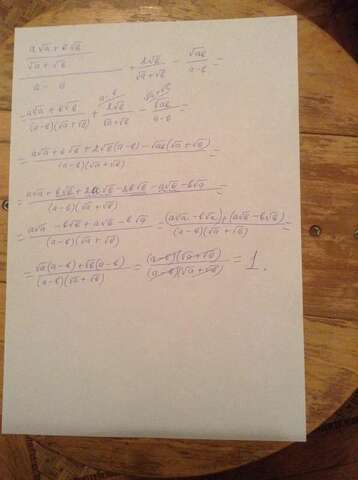 a√a + b√b
√a + √b
a - b
+ 2√b / √a + √b - √ab / a - b =
= a√a + b√b / (a - b)(√a + √b) + a - b / 2√b / √a + √b - √a + √b / √ab / a - b =
= a√a + b√b + 2√b(a - b) - √ab(√a + √b) / (a - b)(√a + √b) =
= a√a + b√b + 2a√b - 2b√b - a√b - b√a / (a - b)(√a + √b) =
= a√a - b√b + a√b - b√a / (a - b)(√a + √b) = (a√a - b√a) + (a√b - b√b) / (a - b)(√a + √b) =
= √a(a - b) + √b(a - b) / (a - b)(√a + √b) = (a - b)(√a + √b) / (a - b)(√a + √b) = 1.